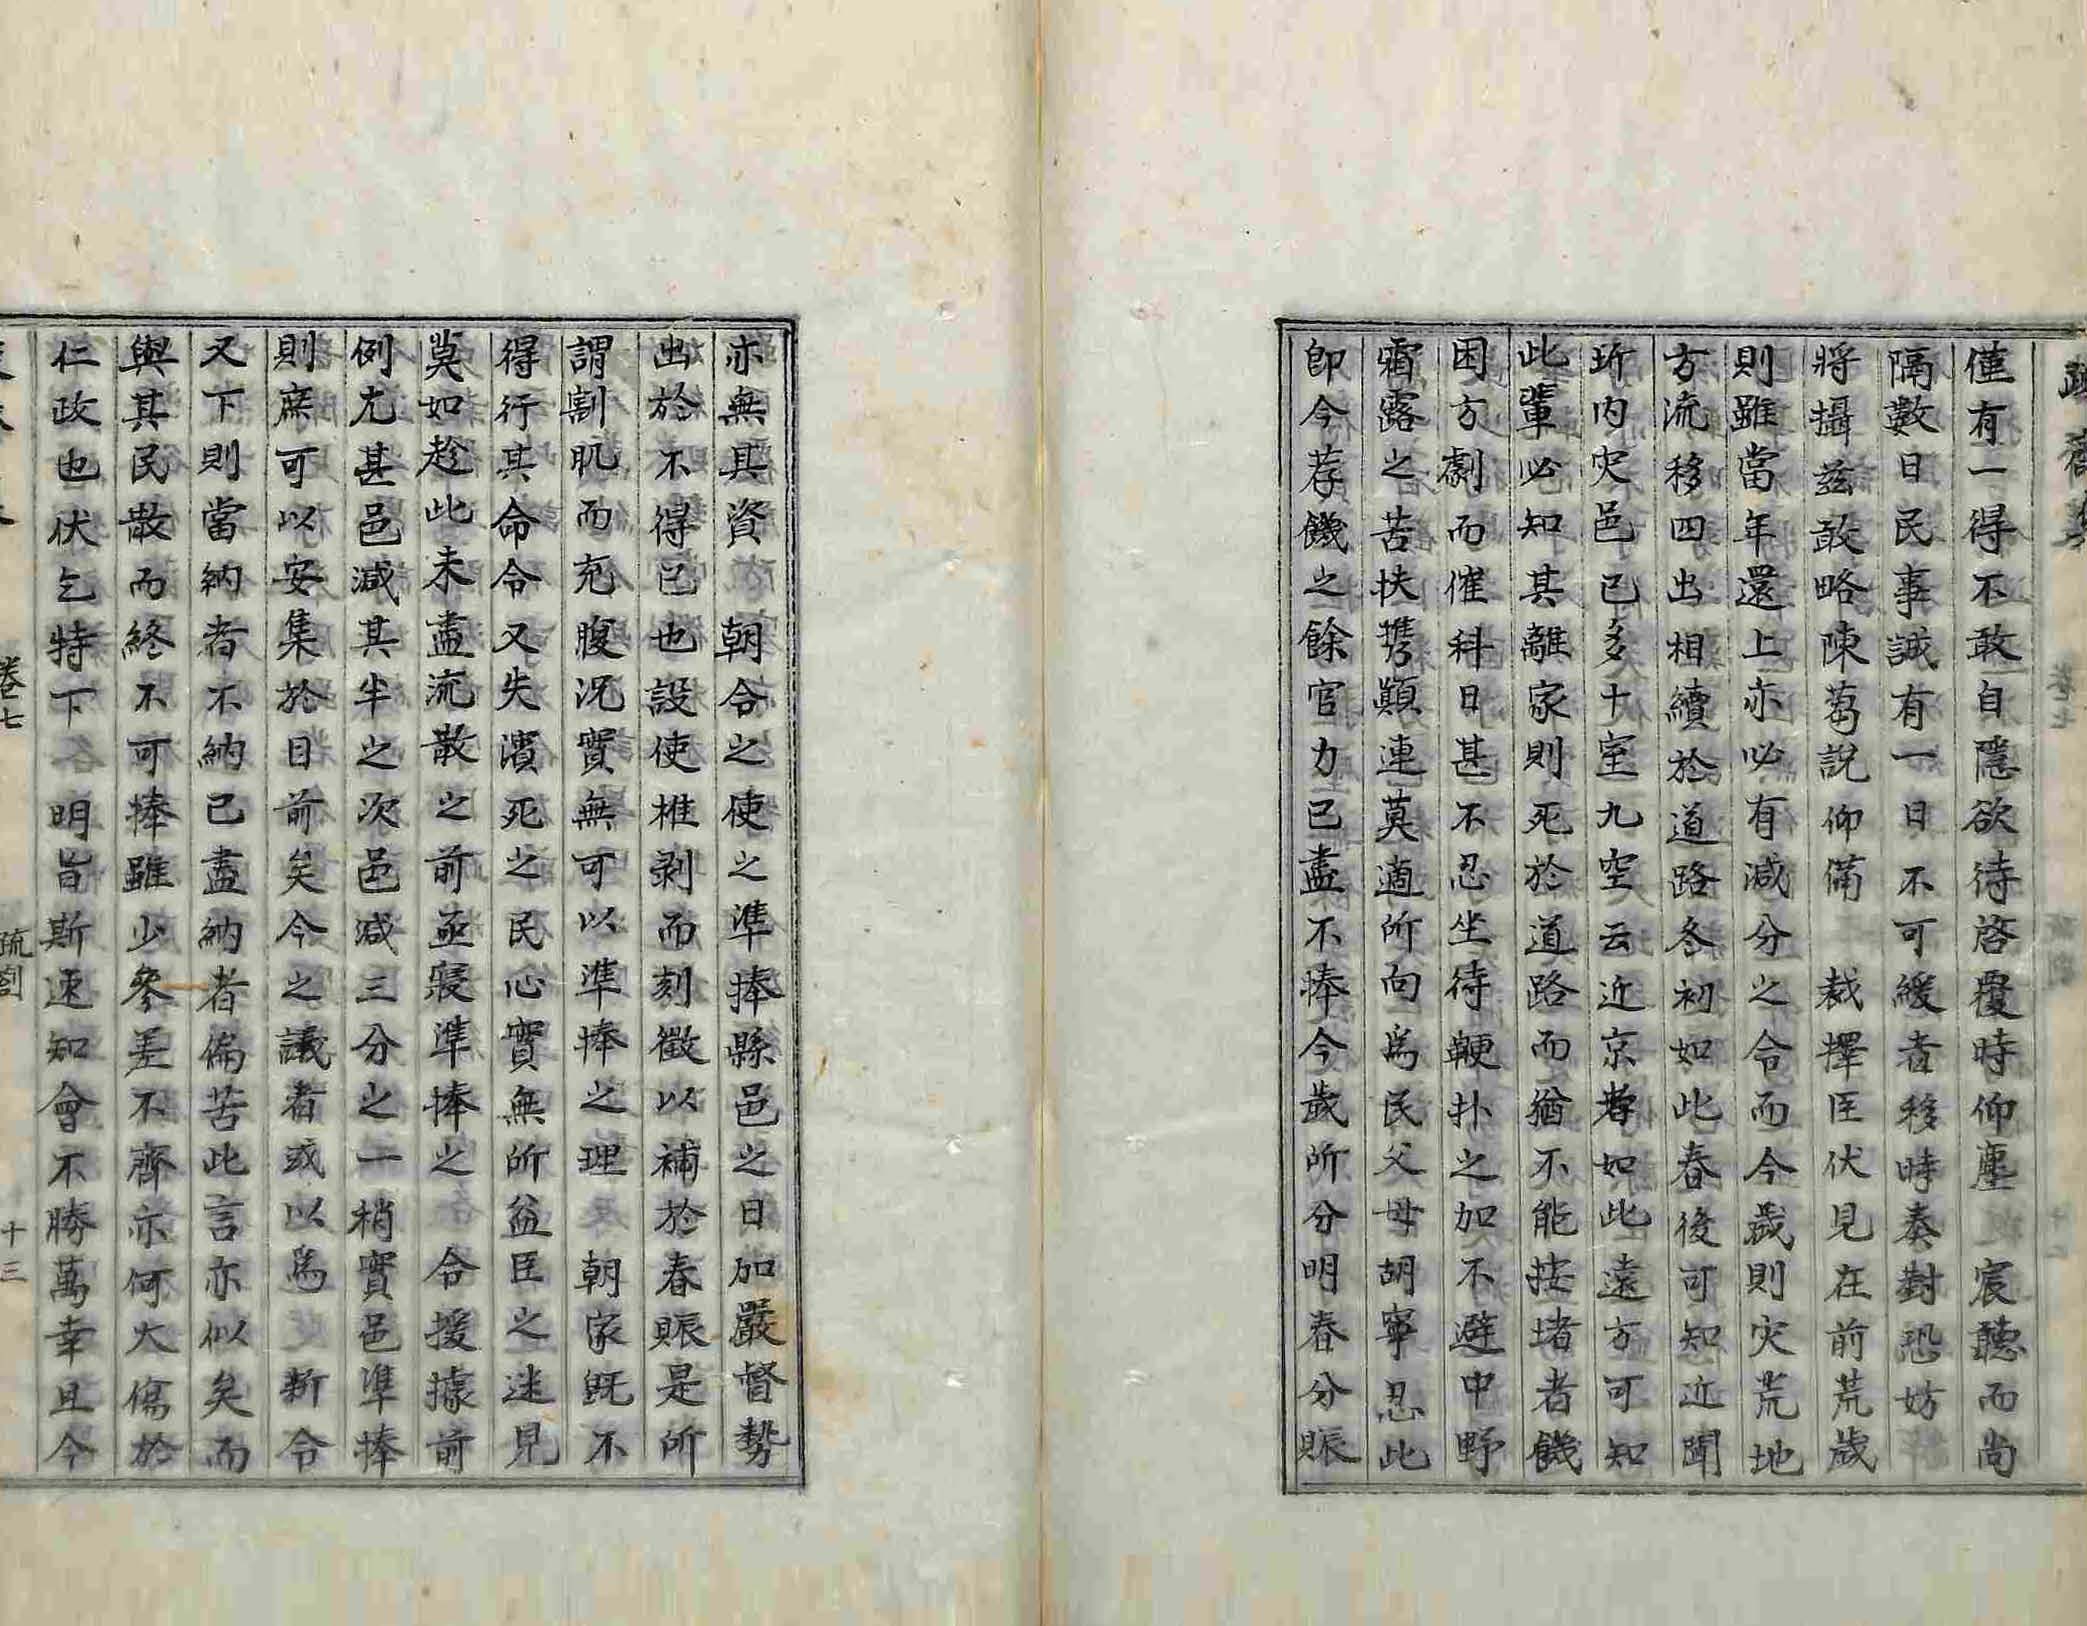 僅有一得不敢自隱欲待啓覆時仰塵 宸聽而尚
隔數日民事誠有一日不可緩者移時奏對恐妨
將攝玆敢略陳蒭說仰備 裁擇臣伏見在前荒歲
則雖當年還上亦必有减分之令而今歲則灾荒地
方流移四出相續於道路冬初如此春後可知近聞
圻內灾邑已多十室九空云近京者如此遠方可知
此輩必知其離家則死於道路而猶不能按堵者饑
困方劇而催科日甚不忍坐待鞭扑之加不避中野
霜露之苦扶携顚連莫適所向爲民父母胡寧忍此
卽今荐饑之餘官力已盡不捧今歲所分明春分賑
亦無其資 朝令之使之準捧縣邑之日加嚴督勢
出於不得已也設使椎剥而刻徵以補於春賑是所
謂割肌而充腹况實無可以準捧之理 朝家旣不
得行其命令又失濱死之民心實無所益臣之迷見
莫如趁此未盡流散之前亟寢準捧之 令援據前
例尤甚邑减其半之次邑减三分之一稍實邑準捧
則庶可以安集於目前矣今之議者或以爲 新令
又下則當納者不納已盡納者偏苦此言亦似矣而
與其民散而終不可捧雖少參差不齊亦何大傷於
仁政也伏乞特下 明旨斯速知會不勝萬幸且今
卷七
疏箚
十三